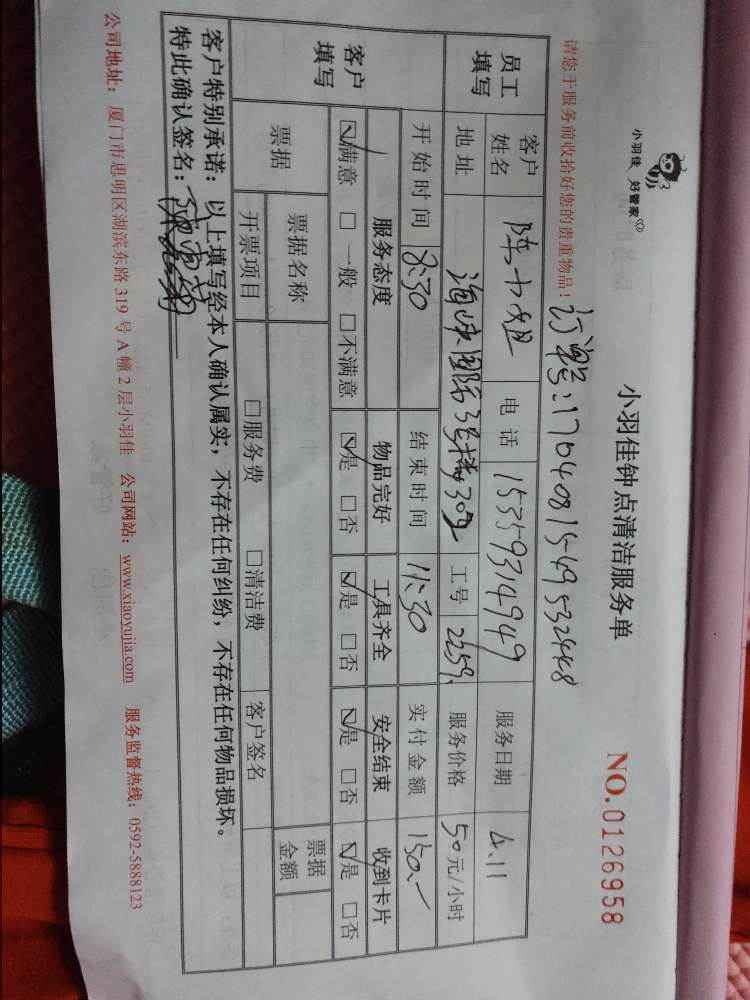 小羽佳 好管家
小羽佳钟点清洁服务单
NO.0126958
请您于服务前收拾好您的贵重物品！ 订单号:1704081549532448
员工填写 客户姓名 陈小姐 电话 15359314949 服务日期 4.11
地址 海峡国际3号楼302 工号 2259 服务价格 50元/小时
开始时间 8:30 结束时间 11:30 实付金额 150
客户填写 服务态度 物品完好 工具齐全 安全结束 收到卡片
☑满意 □一般 □不满意 ☑是 □否 ☑是 □否 ☑是 □否 ☑是 □否
票据 票据名称 票据金额
开票项目 □服务费 □清洁费 客户签名
客户特别承诺：以上填写经本人确认属实，不存在任何纠纷，不存在任何物品损坏。
特此确认签名：
公司地址：厦门市思明区湖滨东路 319 号 A 幢 2 层小羽佳 公司网站：www.xiaoyujia.com 服务监督热线：0592-5888123